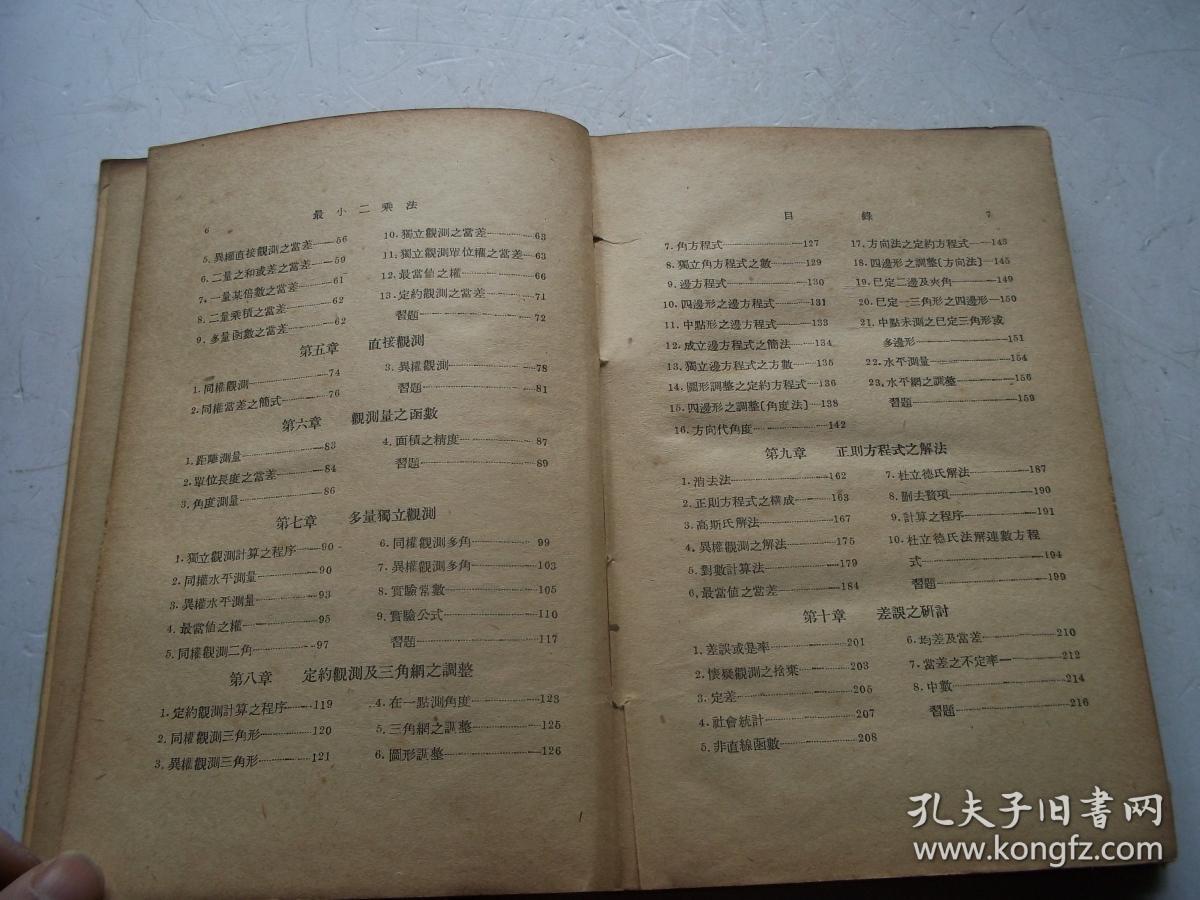 6
最小二乘法
5. 異權直接觀測之當差 56
6. 二量之和或差之當差 59
7. 一量某倍數之當差 61
8. 二量乘積之當差 62
9. 多量函數之當差 62
10. 獨立觀測之當差 63
11. 獨立觀測單位權之當差 63
12. 最當值之權 66
13. 定約觀測之當差 71
習題 72
第五章 直接觀測
1. 同權觀測 74
2. 同權當差之簡式 76
3. 異權觀測 78
習題 81
第六章 觀測量之函數
1. 距離測量 83
2. 單位長度之當差 84
3. 角度測量 86
4. 面積之精度 87
習題 89
第七章 多量獨立觀測
1. 獨立觀測計算之程序 90
2. 同權水平測量 90
3. 異權水平測量 93
4. 最當值之權 95
5. 同權觀測二角 97
6. 同權觀測多角 99
7. 異權觀測多角 103
8. 實驗常數 105
9. 實驗公式 110
習題 117
第八章 定約觀測及三角網之調整
1. 定約觀測計算之程序 119
2. 同權觀測三角形 120
3. 異權觀測三角形 121
4. 在一點測角度 123
5. 三角網之調整 125
6. 圖形調整 126
目錄
7
7. 角方程式 127
8. 獨立角方程式之數 129
9. 邊方程式 130
10. 四邊形之邊方程式 131
11. 中點形之邊方程式 133
12. 成立邊方程式之簡法 134
13. 獨立邊方程式之方數 135
14. 圖形調整之定約方程式 136
15. 四邊形之調整[角度法] 138
16. 方向代角度 142
17. 方向法之定約方程式 143
18. 四邊形之調整[方向法] 145
19. 已定二邊及夾角 149
20. 已定一三角形之四邊形 150
21. 中點未測之已定三角形或
多邊形 151
22. 水平測量 154
23. 水平網之調整 156
習題 159
第九章 正則方程式之解法
1. 消去法 162
2. 正則方程式之構成 163
3. 高斯氏解法 167
4. 異權觀測之解法 175
5. 對數計算法 179
6. 最當值之當差 184
7. 杜立德氏解法 187
8. 删去贅項 190
9. 計算之程序 191
10. 杜立德氏法解連數方程
式 194
習題 199
第十章 差誤之研討
1. 差誤或是率 201
2. 懷疑觀測之捨棄 203
3. 定差 205
4. 社會統計 207
5. 非直線函數 208
6. 均差及當差 210
7. 當差之不定率 212
8. 中數 214
習題 216
孔夫子旧书网
www.kongfz.com